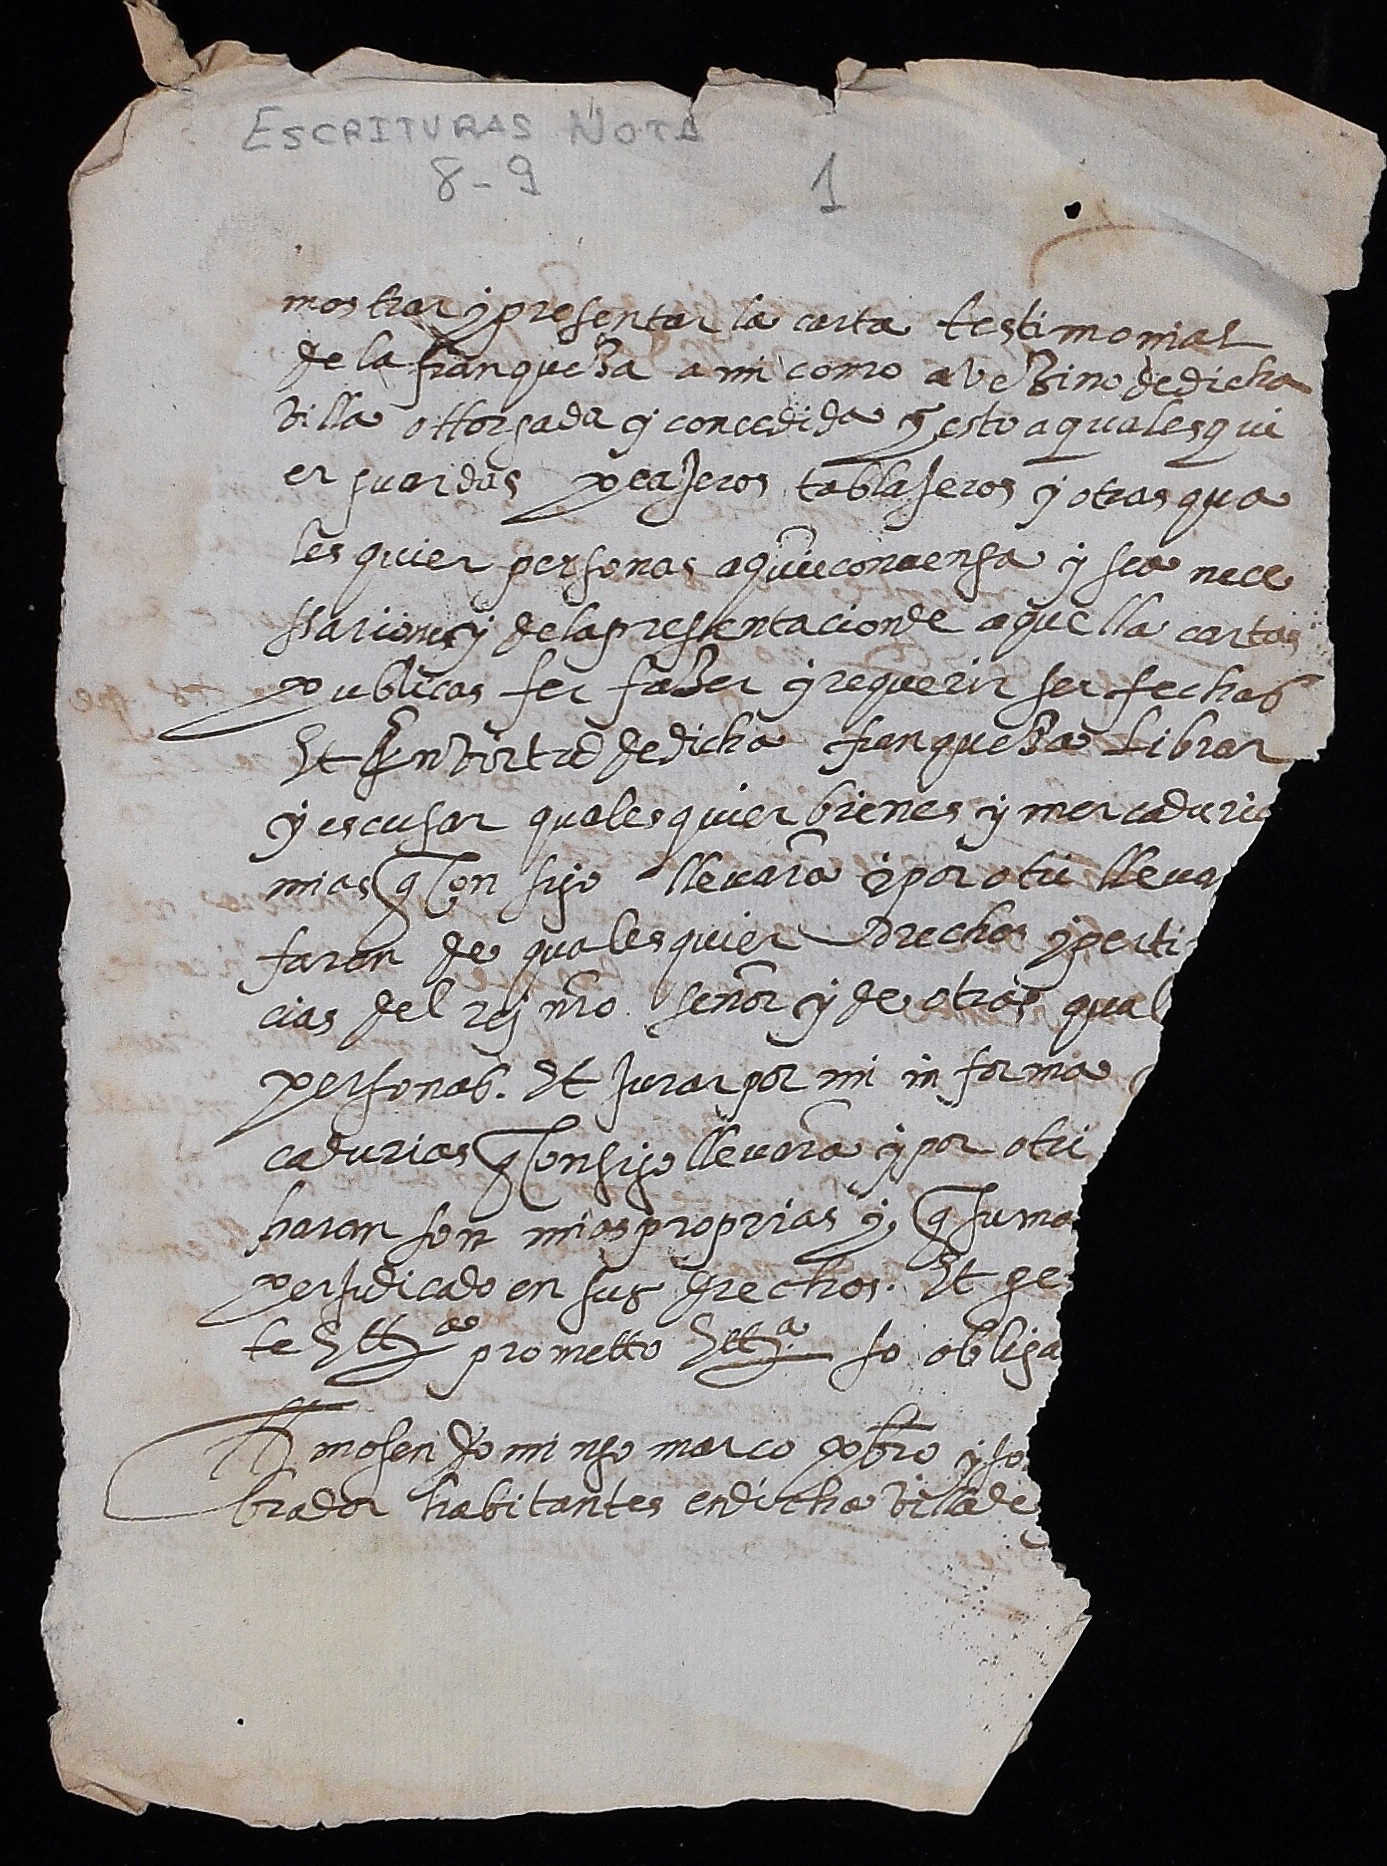 ESCRITURAS NOTA
8-9 1
mostrar y presentar la carta testimonial
de la franqueza a mi como a vezino de dicha
villa ottorgada y concedida y esto a qualesqui
er guardas peajeros tablajeros y otras qua
lesquier personas a quien convenga y sea nece
ssario y de la pressentacion de aquella cartas
publicas fer fazer y requerir ser fechas
Et en virtud de dicha franqueza librar
y escusar qualesquier bienes y mercaduri
mias q con sigo llevara y por otri lleva
faran de qualesquier drechos y perti
cias del rej nro señor y de otras qual
personas. Et jurar por mi in forma
cadurias q consigo llevara y por otri
haran son mias proprias y q su ma
perjudicado en sus drechos. Et ge
te Ettª prometto Ettª. so obliga
Tt mosen domingo marco pbro y
brador habitantes en dicha villa de